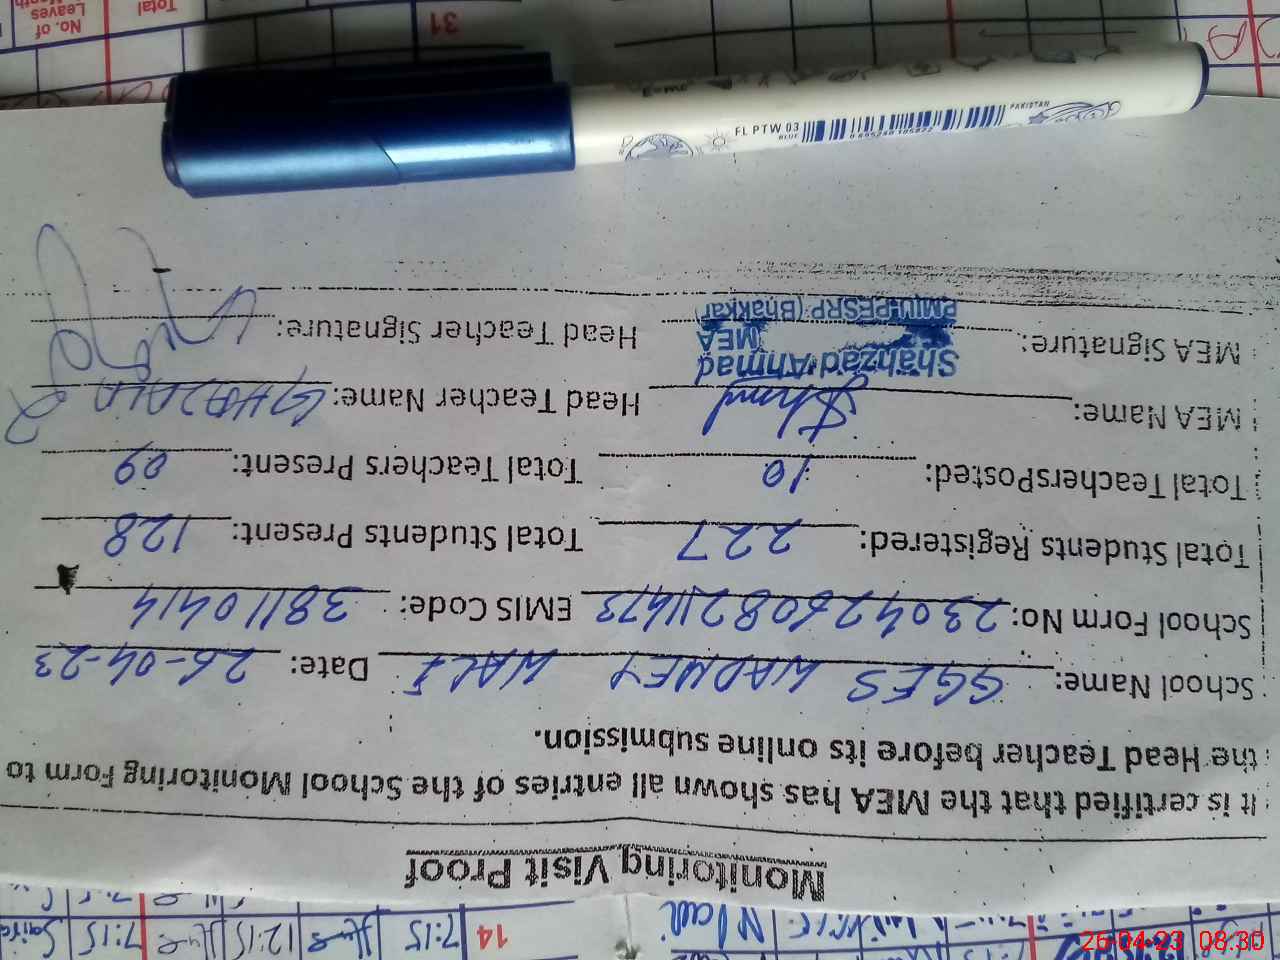 Monitoring Visit Proof
It is certified that the MEA has shown all entries of the School Monitoring Form to
the Head Teacher before its online submission.
School Name: GGES WADHEY WALI Date: 26-04-23
School Form No: 23042608211473 EMIS Code: 38110414
Total Students Registered: 227 Total Students Present: 128
Total TeachersPosted: 10 Total Teachers Present: 09
MEA Name: Head Teacher Name: GHAZALA
MEA Signature: Head Teacher Signature:
Shahzad Ahmad
MEA
PMIU-PESRP (Bhakkar)
FL PTW 03
BLUE
PAKISTAN
31
No. of
Leaves
Total
14 7:15 12:15 7:15
26-04-23 08:30